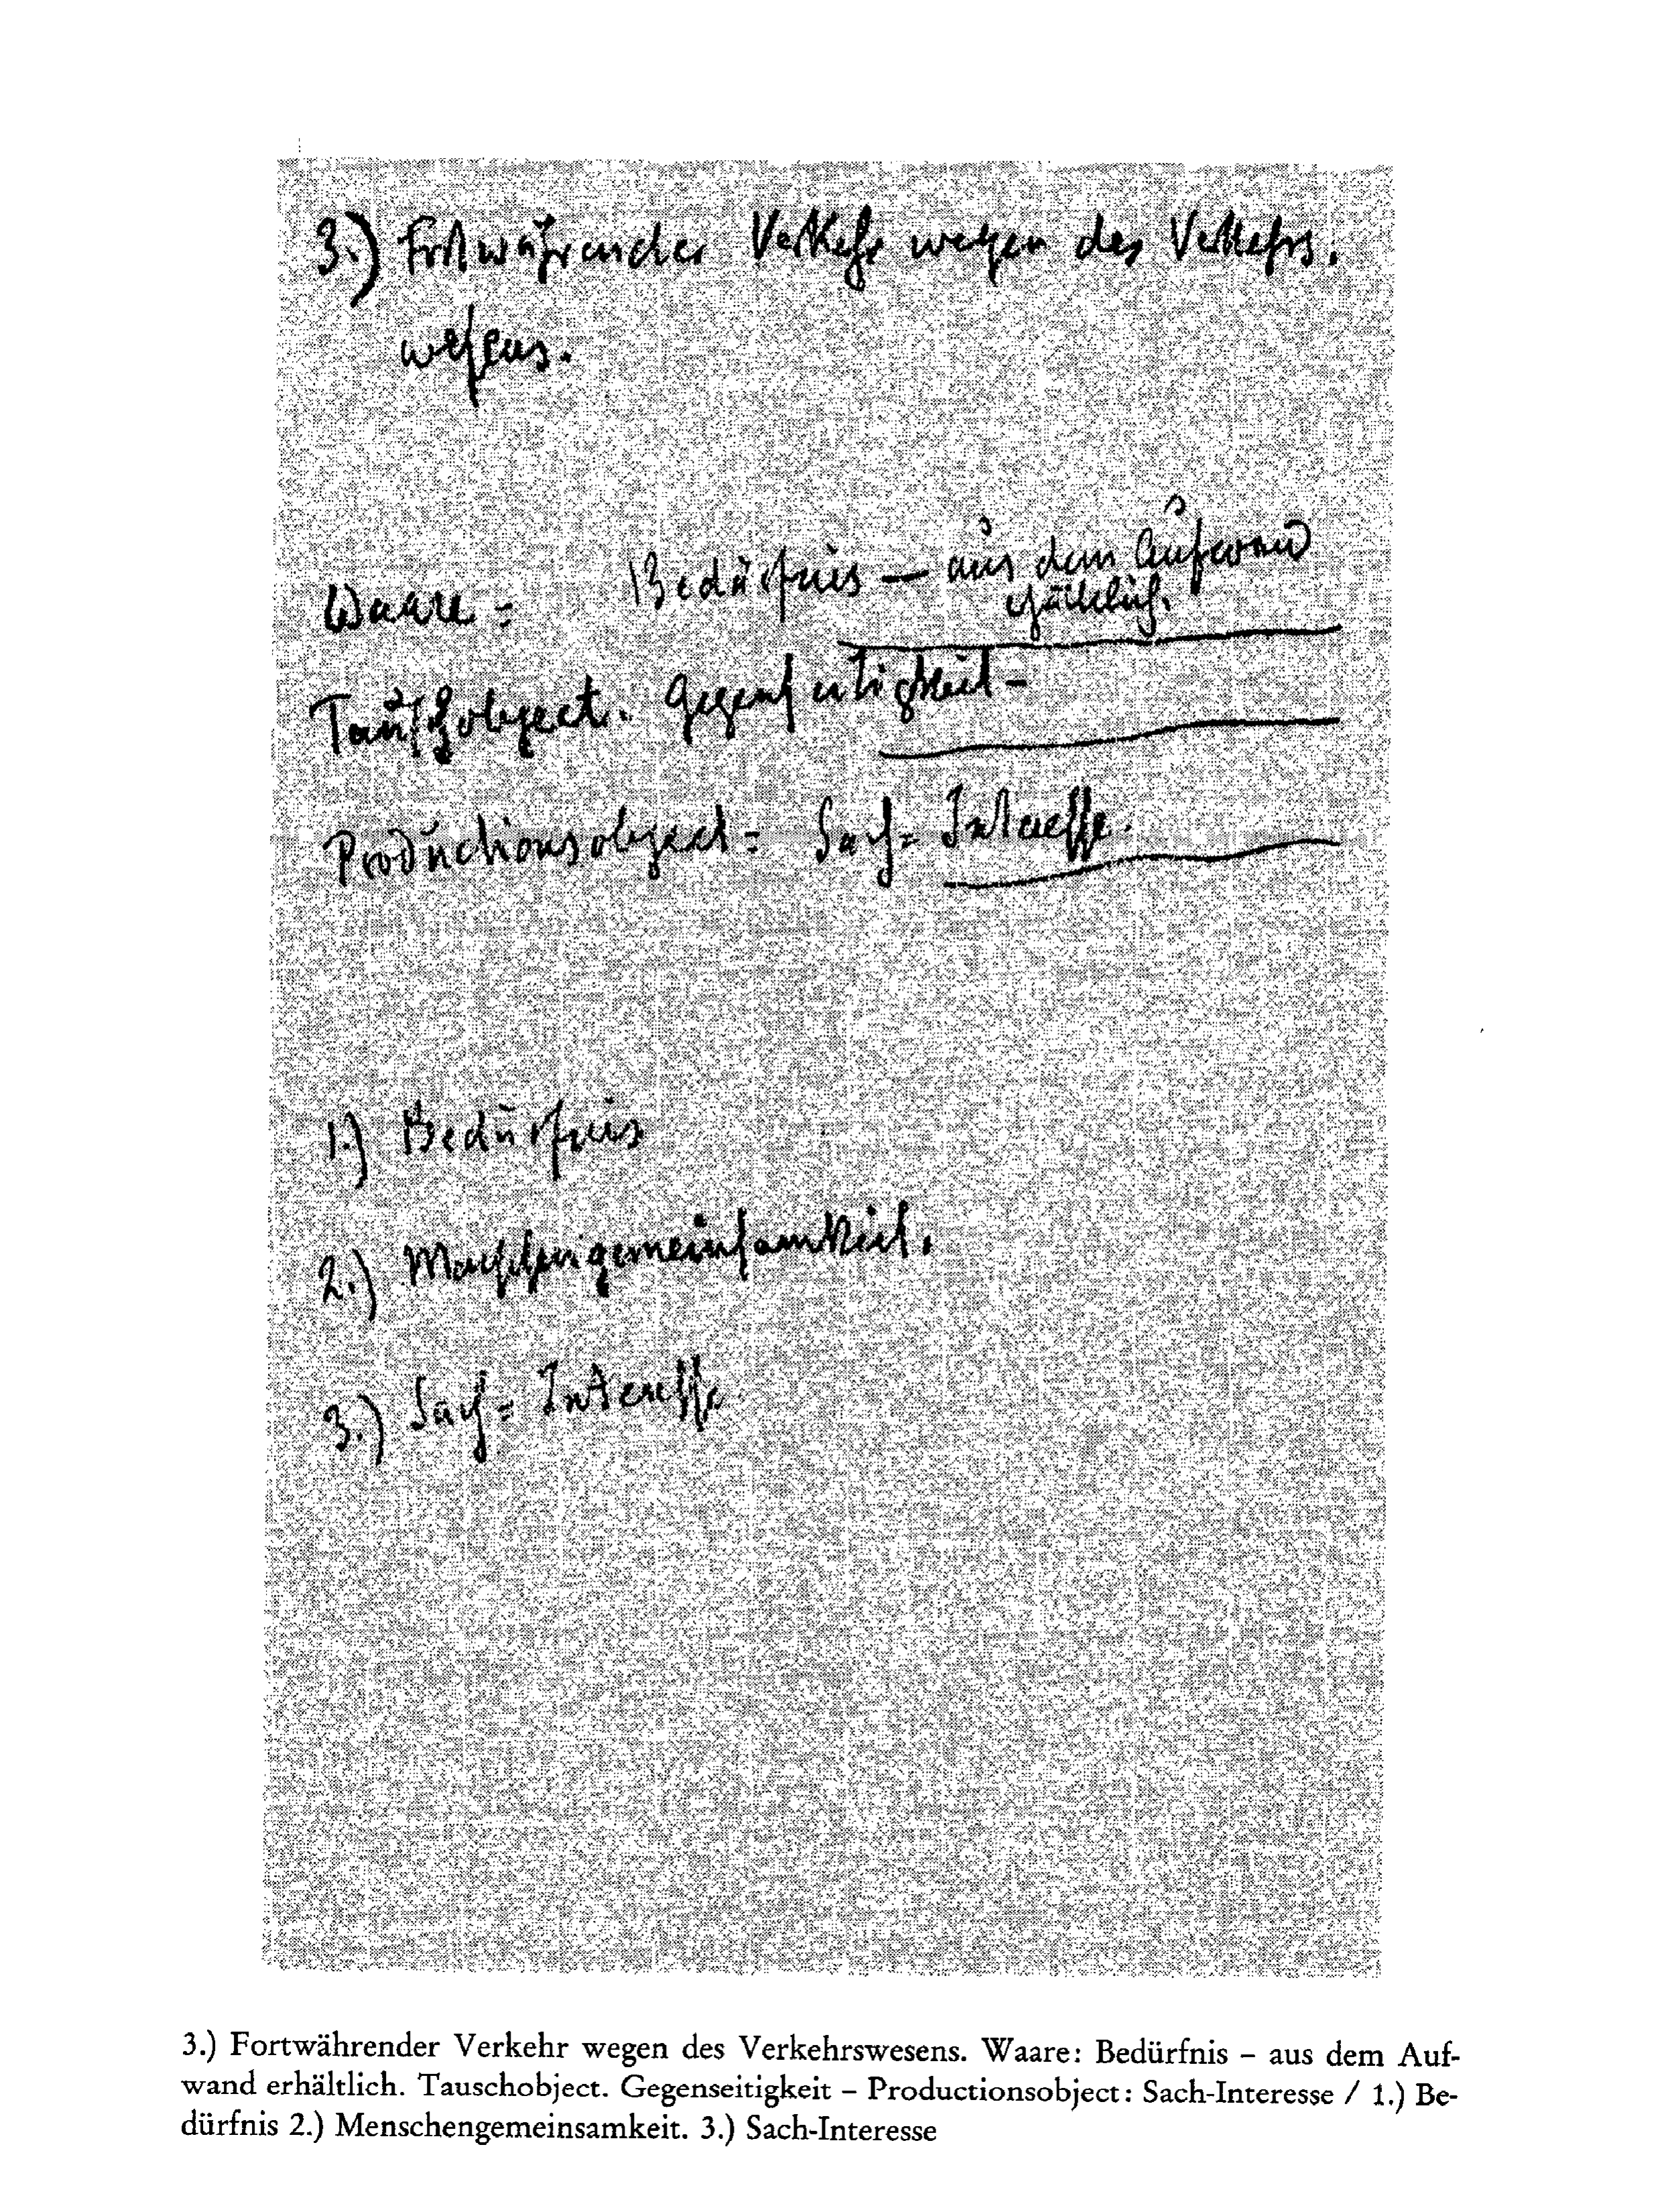 3.) Fortwährender Verkehr wegen des Verkehrs-
wesens.
Waare: Bedürfnis — aus dem Aufwand
erhältlich.
Tauschobject. Gegenseitigkeit –
Productionsobject: Sach-Interesse.
1.) Bedürfnis
2.) Menschengemeinsamkeit.
3.) Sach-Interesse
3.) Fortwährender Verkehr wegen des Verkehrswesens. Waare: Bedürfnis – aus dem Auf-
wand erhältlich. Tauschobject. Gegenseitigkeit – Productionsobject: Sach-Interesse / 1.) Be-
dürfnis 2.) Menschengemeinsamkeit. 3.) Sach-Interesse